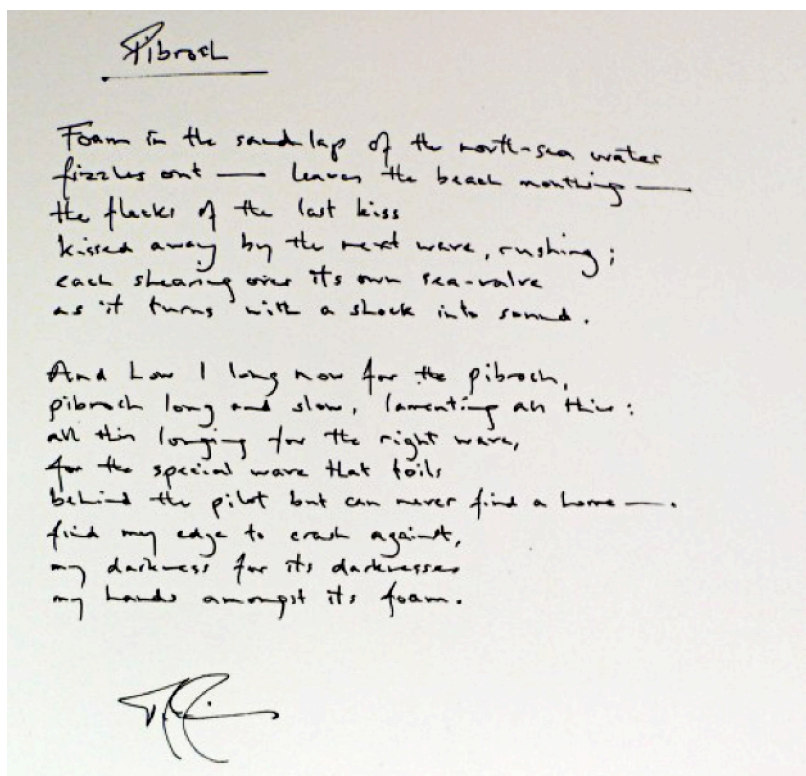 Pibroch
Foam in the sand-lap of the north-sea water
fizzles out — leaves the beach mouthing —
the flecks of the last kiss
kissed away by the next wave, rushing;
each shearing over its own sea-valve
as it turns with a shock into sound.
And how I long now for the pibroch,
pibroch long and slow, lamenting all this:
all this longing for the right wave,
for the special wave that toils
behind the pilot but can never find a home —.
find my edge to crash against,
my darkness for its darknesses
my hands amongst its foam.